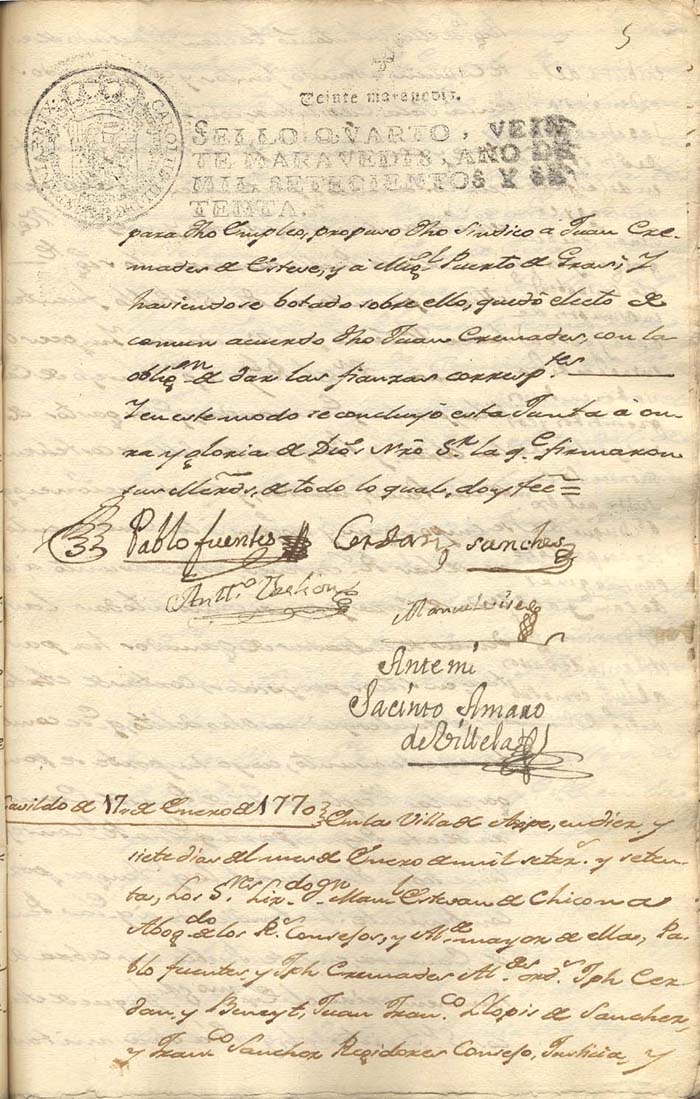 5
Veinte maravedis.
SELLO QVARTO, VEIN
TE MARAVEDIS, AÑO DE
MIL SETECIENTOS Y SE
TENTA.
para dho Empleo, propuso dho Sindico a Juan Cre-
mades de Esteve, y à Migl. Puerto de Grasi, Y
haviendose botado sobre ello, quedó electo de
comun acuerdo dho Juan Cremades, con la
obligon. de dar las fianzas corresptes.
Y en este modo se concluyó esta Junta à on-
ra y gloria de Dios Nro Sr. la qe. firmaron
sus Mrds, de todo lo qual, doy fee=
Pablo fuentes Cerdan sanches
Antto.
Manuel
Antemi
Jacinto Amaro
de Villela
Cavildo de 17 de Enero de 1770 En la Villa de Aspe, en diez y
siete dias del mes de Enero de mil setezs. y seten-
ta, Los Sres. Lizdo. Dn. Manl. Estevan de Chicona
Abogdo. de los Rs. Consejos, y Alde. mayor de ella, Pa-
blo fuentes, y Jph Cremades Aldes. ords. Jph Cer-
dan, y Beneyt, Juan Franco. Llopis de Sanchez,
y Franco. Sanchez Regidores Consejo, Justicia, y